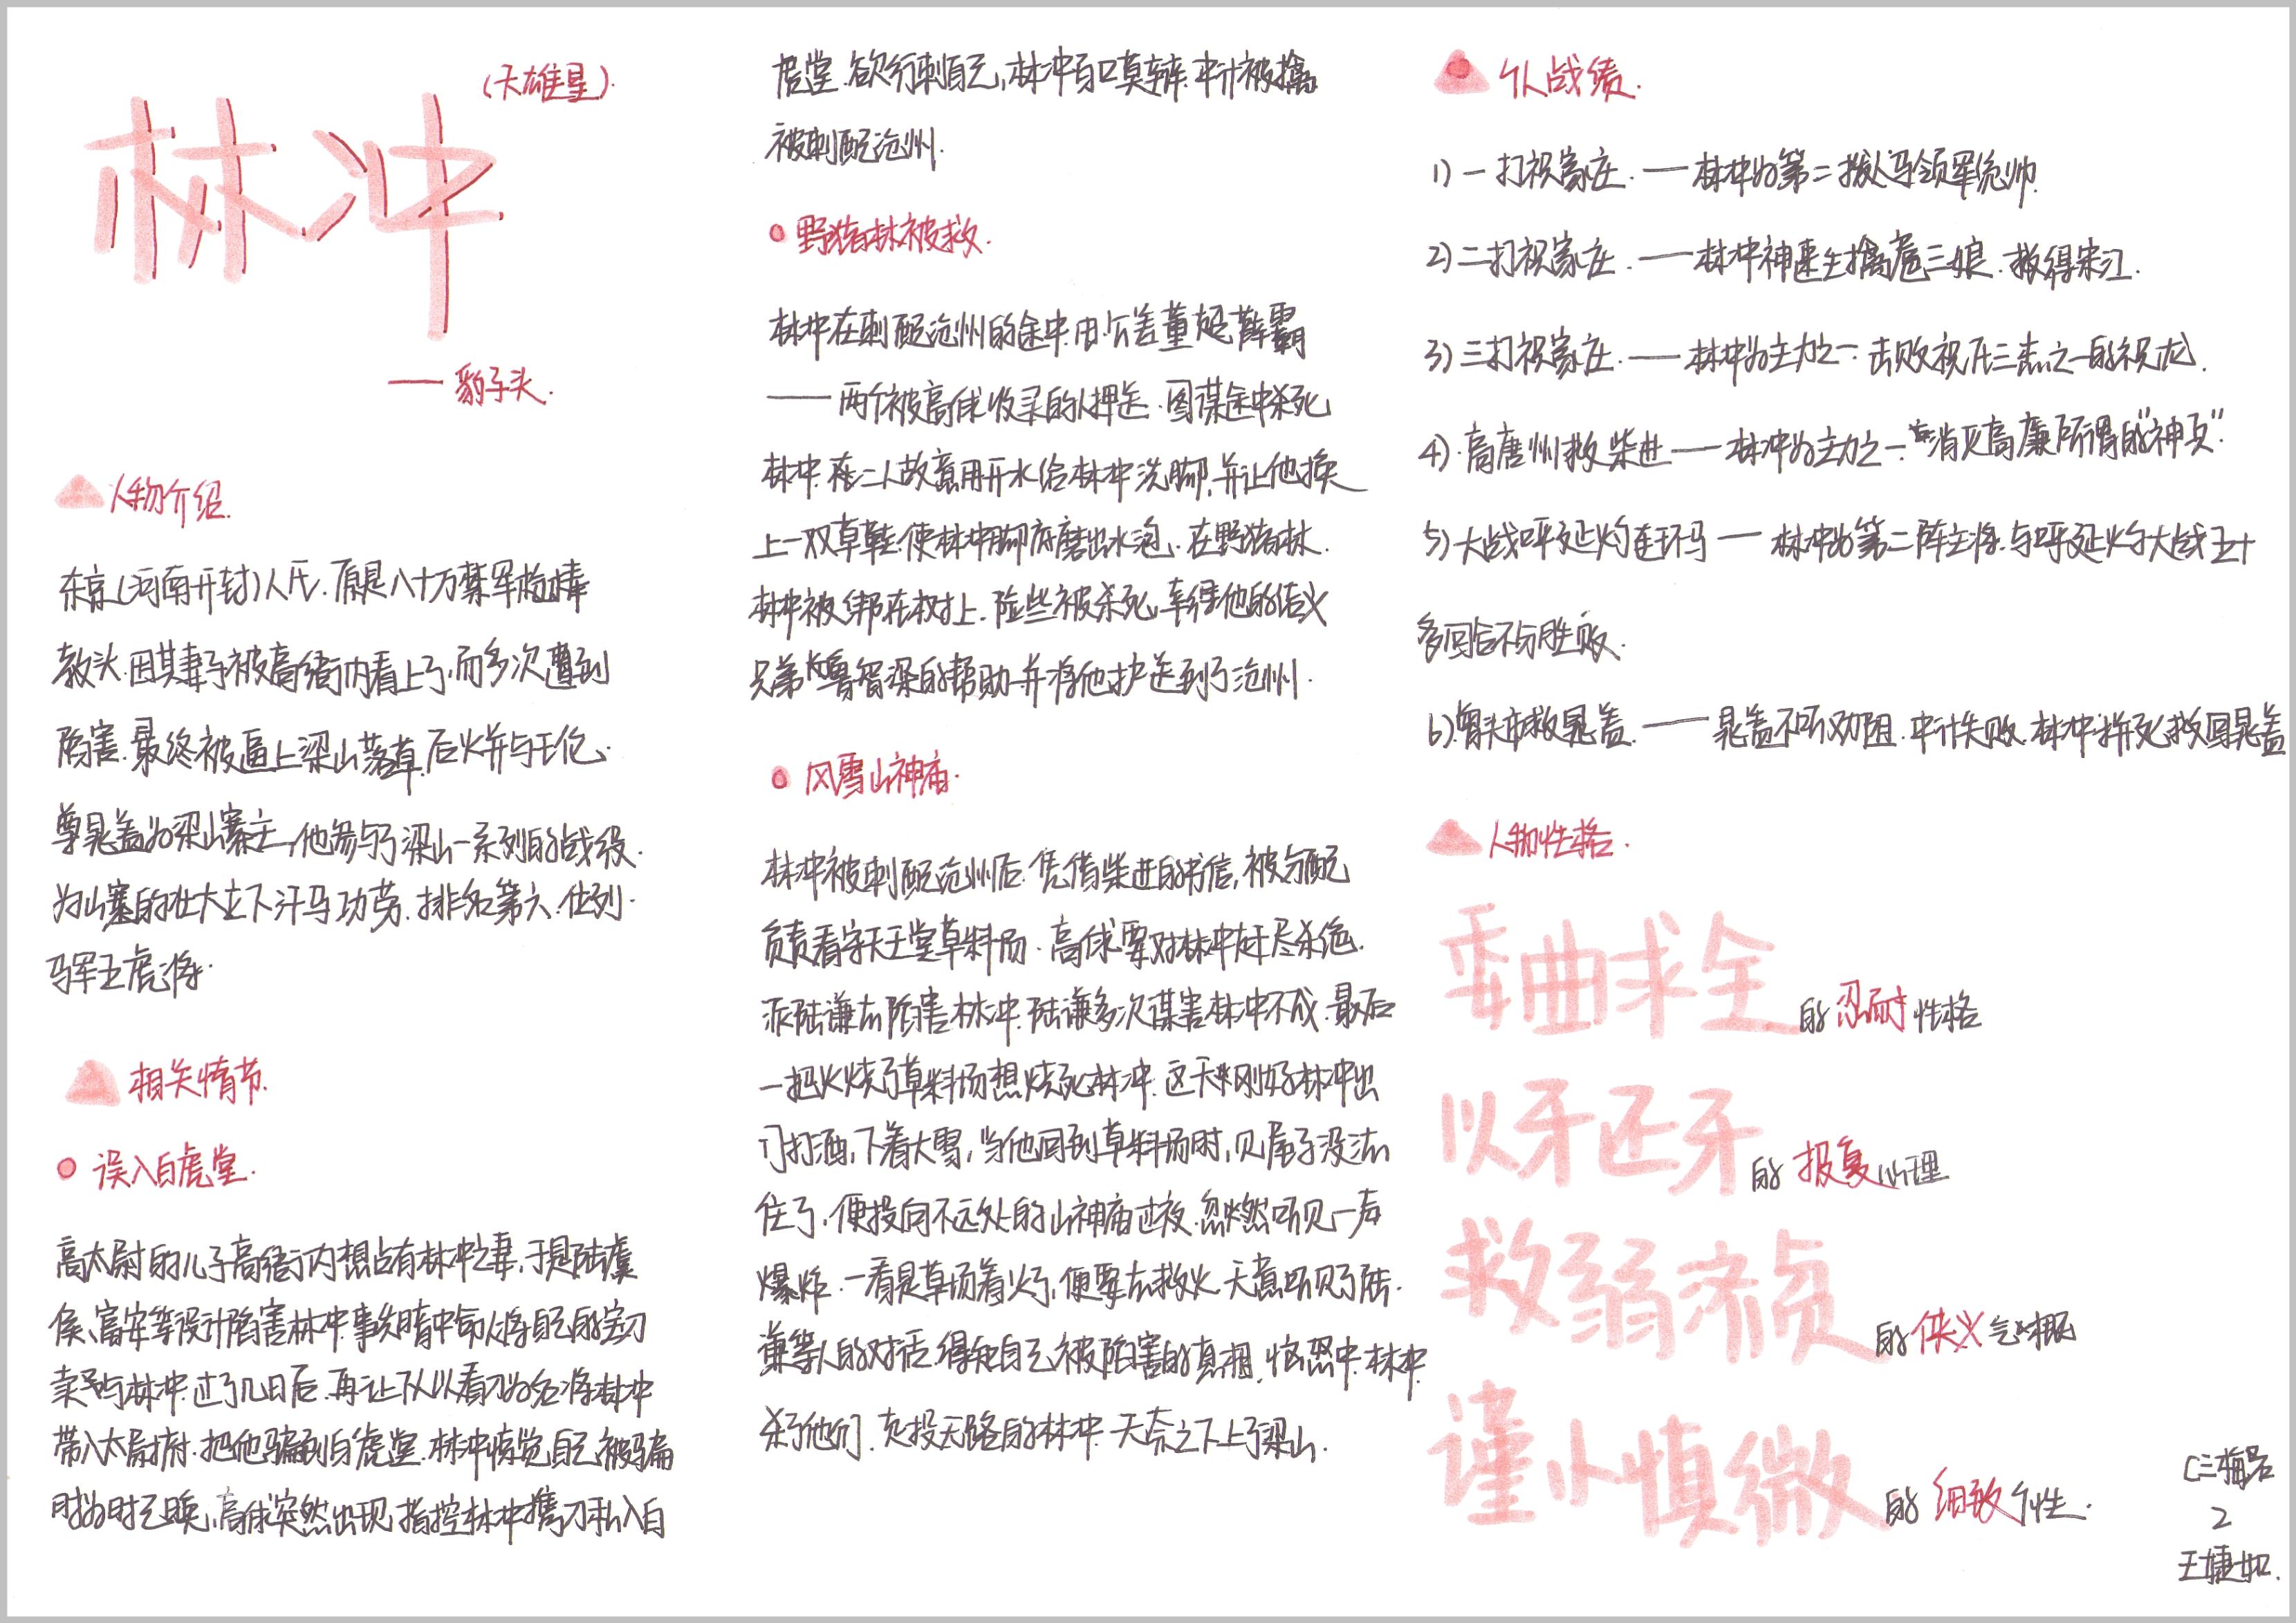 林冲
(天雄星).
—— 豹子头.
人物介绍.
东京(河南开封)人氏.原是八十万禁军枪棒
教头.因其妻子被高衙内看上了,而多次遭到
陷害.最终被逼上梁山落草.后火并与王伦.
尊晁盖为梁山寨主,他参与了梁山一系列的战役.
为山寨的壮大立下汗马功劳.排名第六.位列.
马军五虎将.
相关情节.
误入白虎堂.
高太尉的儿子高衙内想占有林冲之妻,于是陆虞
侯、富安等设计陷害林冲.事先暗中命人将自己的宝刀
卖予与林冲.过了几日后.再让下人以看刀为名将林冲
带入太尉府.把他骗到白虎堂.林冲惊觉自己被骗
时为时已晚,高俅突然出现,指控林冲携刀私入白
虎堂.欲行刺自己,林冲百口莫辩.中计被擒
被刺配沧州.
野猪林被救.
林冲在刺配沧州的途中.由公差董超薛霸
——两个被高俅收录的人押送.图谋途中杀死
林冲.在二人故意用开水给林冲洗脚,并让他换
上一双草鞋.使林冲脚底磨出水泡.在野猪林.
林冲被绑在树上.险些被杀死,幸得他的结义
兄弟鲁智深的帮助并将他护送到了沧州.
风雪山神庙.
林冲被刺配沧州后.凭借柴进的书信,被分配
负责看守天王堂草料场.高俅要对林冲赶尽杀绝.
派陆谦去陷害林冲.陆谦多次谋害林冲不成.最后
一把火烧了草料场想烧死林冲.这天刚好林冲出
门打酒,下着大雪,当他回到草料场时,见屋子没法
住了,便投向不远处的山神庙过夜.忽然听见一声
爆炸.一看是草场着火了,便要去救火.无意听见了陆.
谦等人的对话.得知自己被陷害的真相.恼怒中.林冲
杀了他们.走投无路的林冲.无奈之下上了梁山.
个人战绩.
1)一打祝家庄.——林冲为第二拨人马领军统帅.
2)二打祝家庄.——林冲神速生擒扈三娘.救得宋江.
3)三打祝家庄.——林冲为主力之一.击败祝氏三杰之一的祝龙.
4).高唐州救柴进——林冲为主力之一.消灭高廉所谓的"神兵".
5)大战呼延灼连环马——林冲为第二阵主将.与呼延灼大战五十
多回合不分胜败.
6)曾头市救晁盖.——晁盖不听劝阻.中计失败.林冲拼死救回晁盖
人物性格.
委曲求全的忍耐性格
以牙还牙的报复心理
救弱济贫的侠义气概
谨小慎微的细致个性.
2
王婕如.